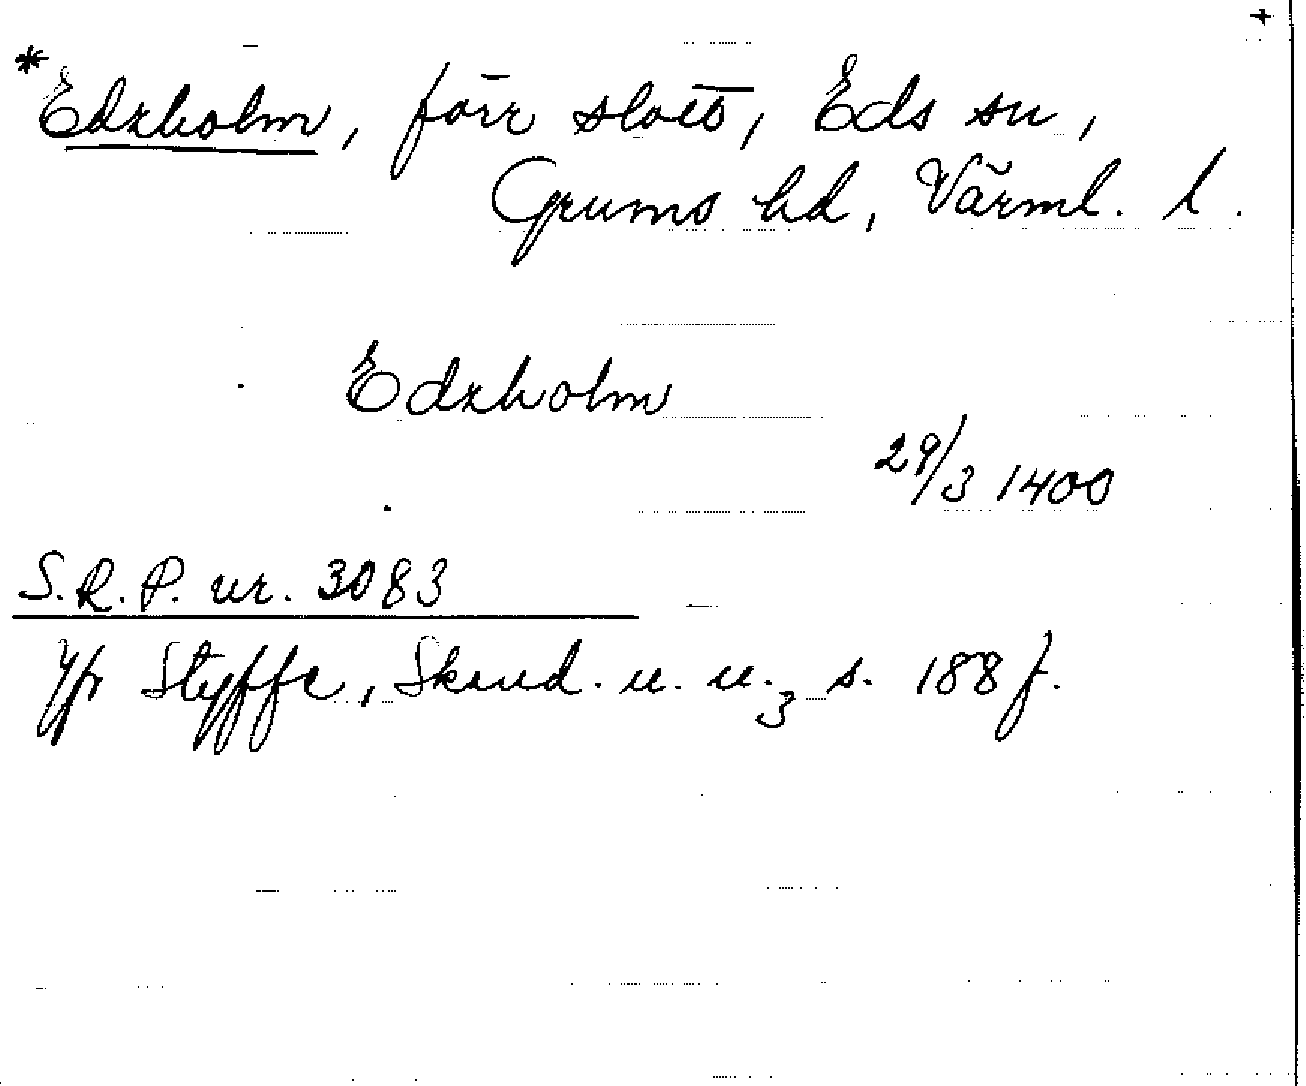 +
*Edzholm, förr slott, Eds sn,
Grums hd, Värml. l.
Edzholm
29/3 1400
S.R.P. nr. 3083
Jfr Styffe, Skand. u. u.3 s. 188 f.